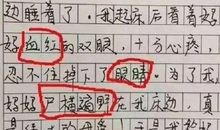 边睡着了。我起床后看着好
好血红的双眼,十分心疼,
忍不住掉下了眼睛。为了我
好好尸横遍野在我床边,真